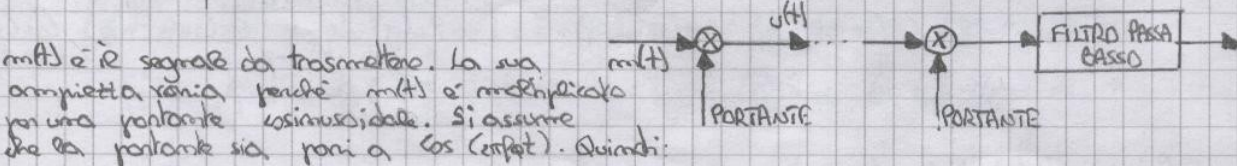 m(t) è il segnale da trasmettere. La sua
ampiezza varia perché m(t) è moltiplicato
per una portante cosinusoidale. Si assume
che la portante sia pari a cos(2πfpt). Quindi:
m(t)
u(t)
FILTRO PASSA
BASSO
PORTANTE
PORTANTE